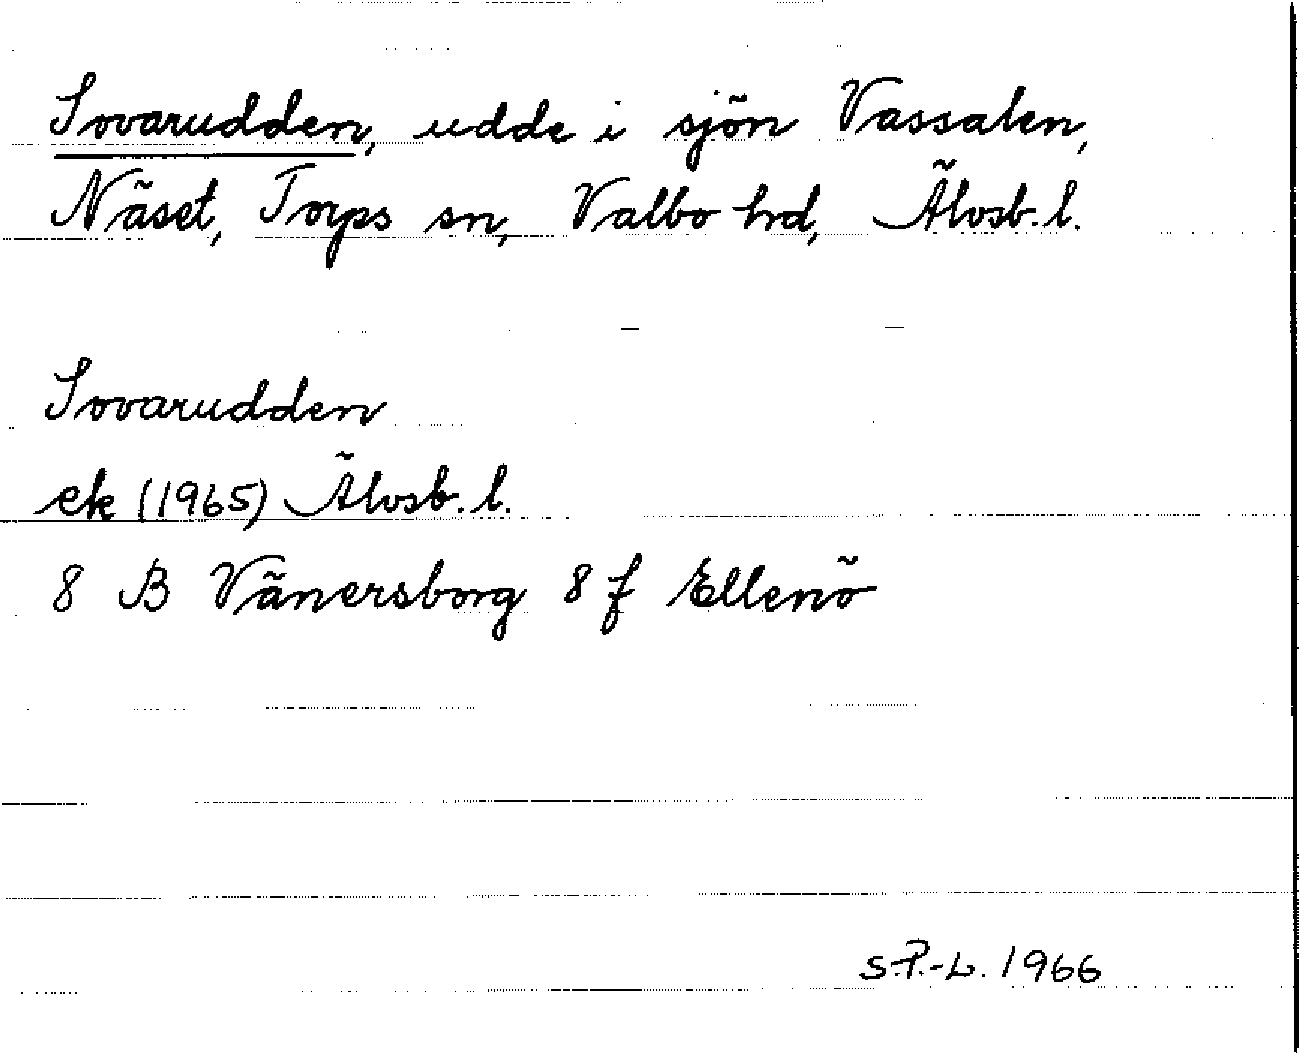 Sovarudden, udde i sjön Vassalen,
Näset, Torps sn, Valbo hd, Älvsb. l.
Sovarudden
ek (1965) Älvsb. l.
8 B Vänersborg 8 f Ellenö
S.P.-L. 1966